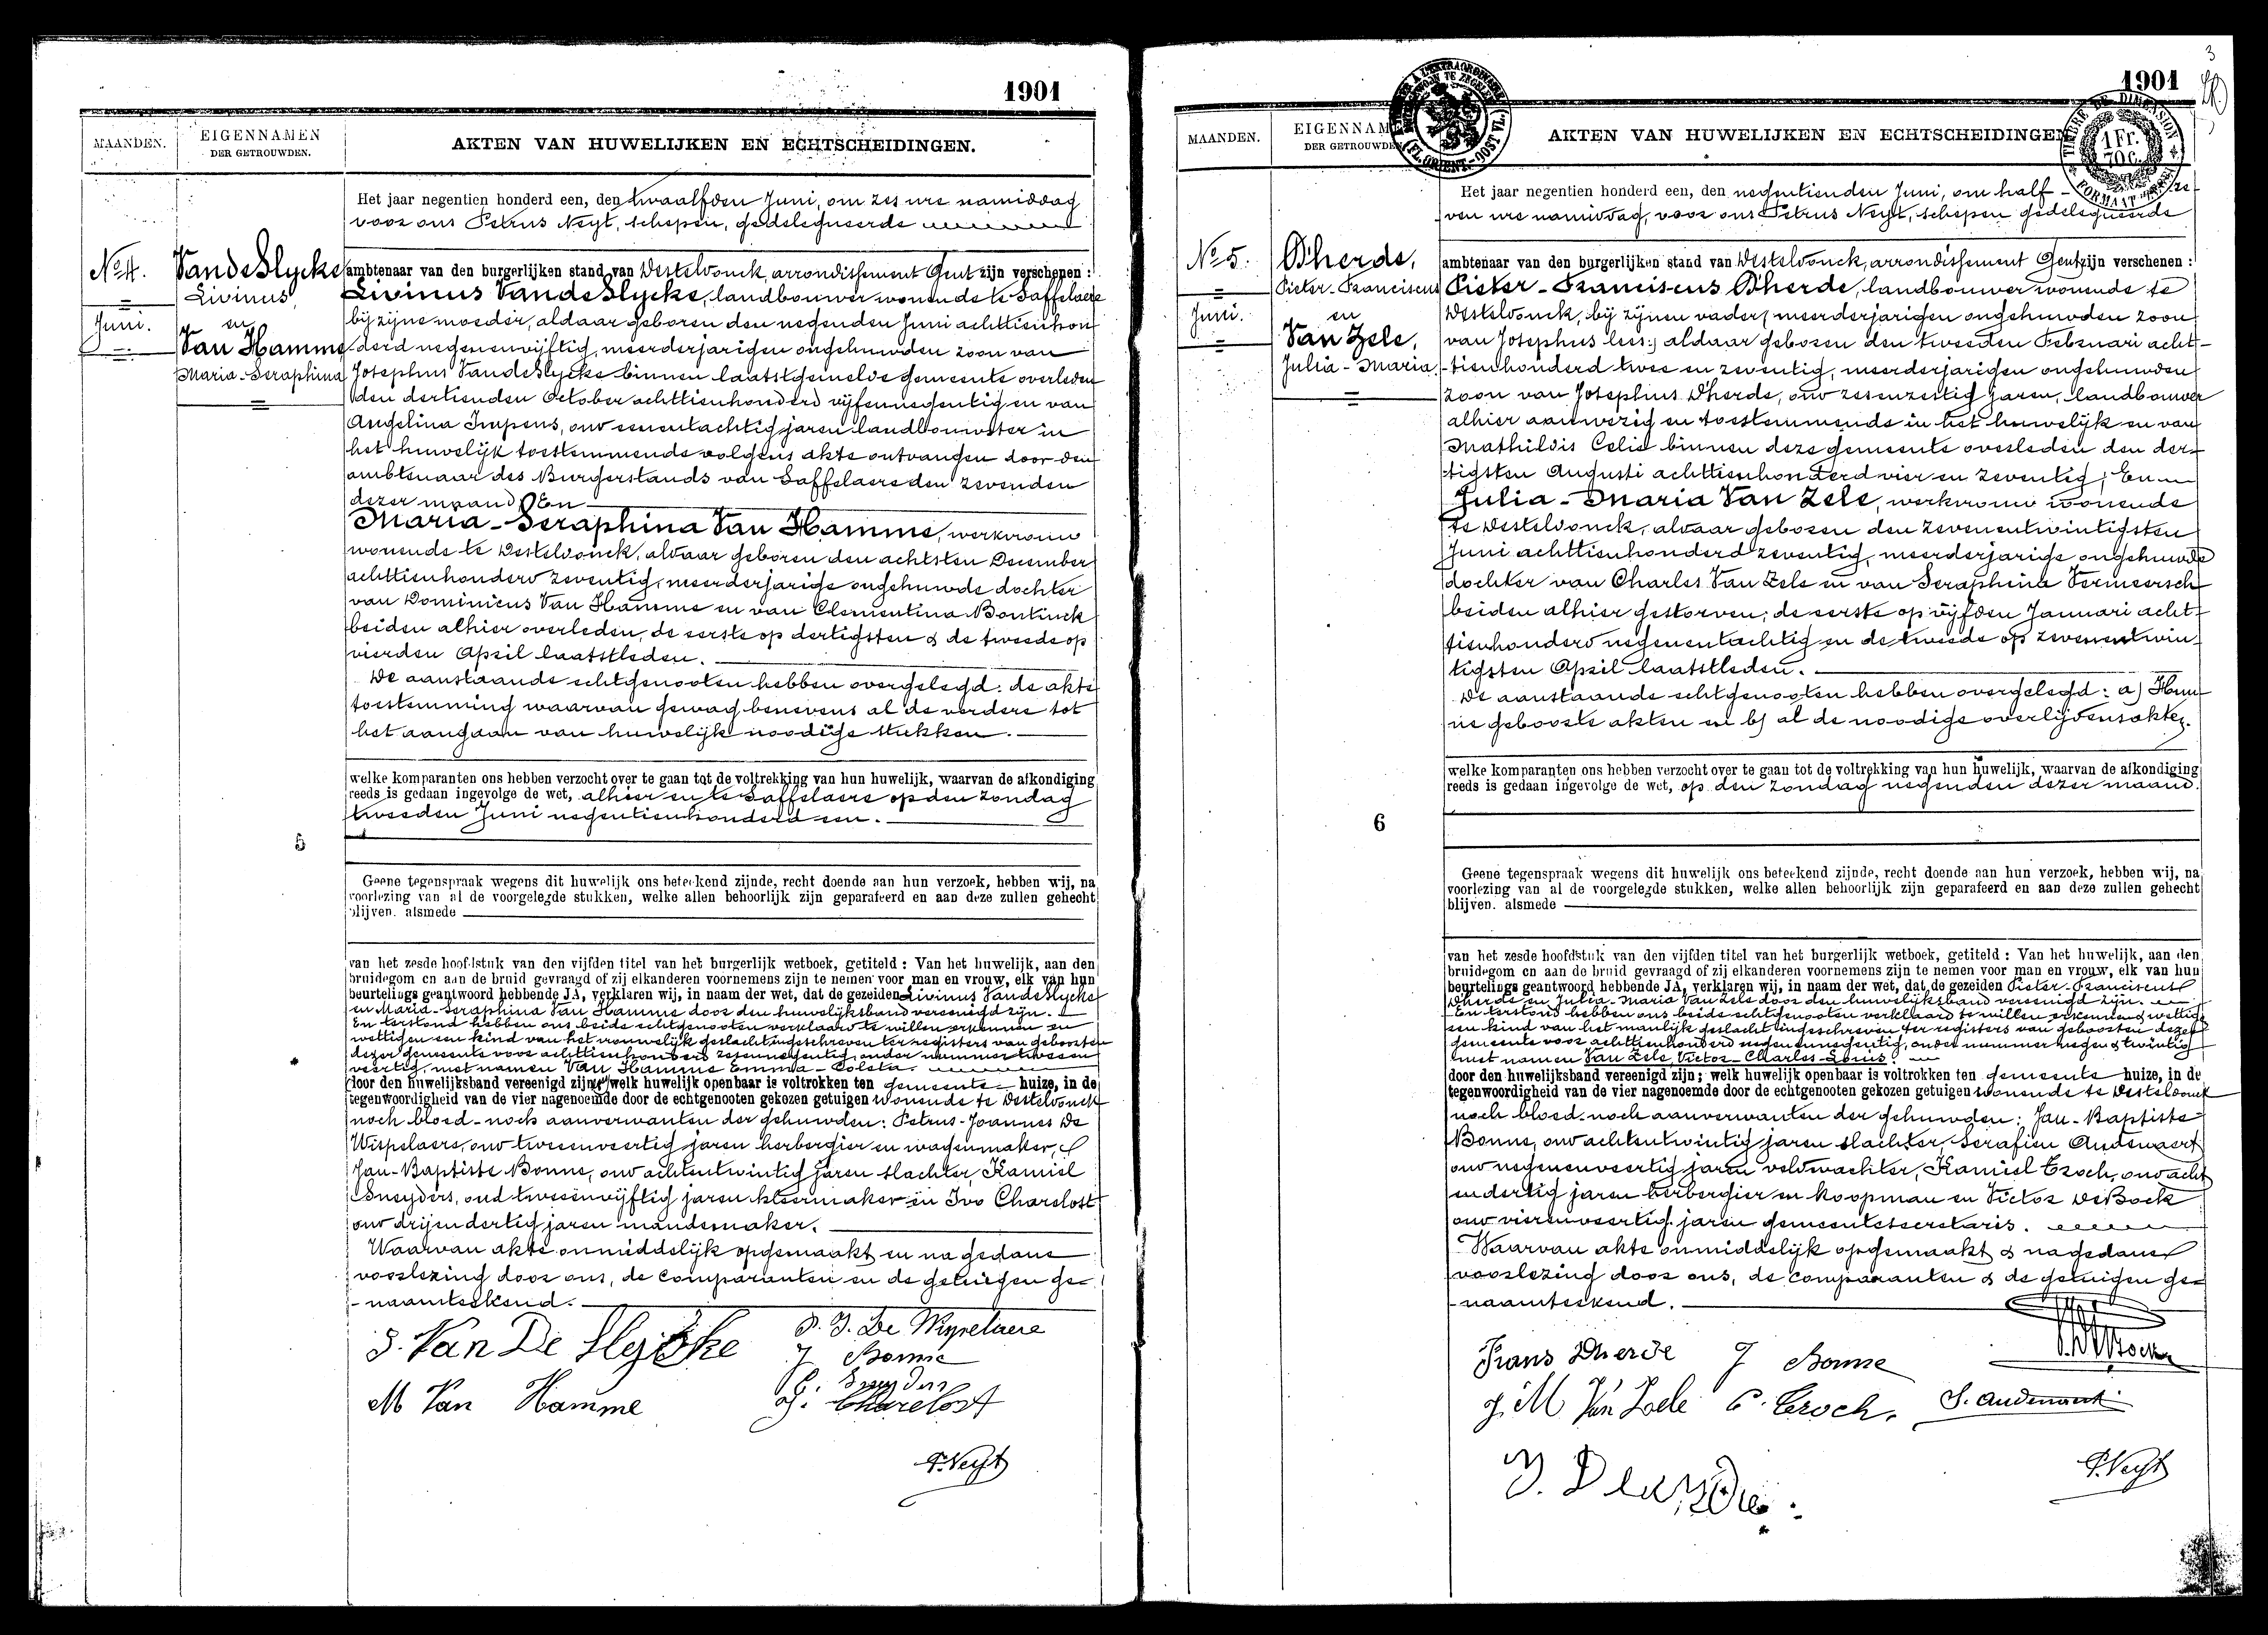 1901
MAANDEN.
EIGENNAMEN
DER GETROUWDEN.
AKTEN VAN HUWELIJKEN EN ECHTSCHEIDINGEN.
Het jaar negentien honderd een, den twaalfden Juni, om zes ure namiddag
voor ons Petrus Neyt, schepen, gedelegueerde
No 4.
Juni.
VandeSlycke
Livinus,
en
Van Hamme
Maria-Seraphina
ambtenaar van den burgerlijken stand van Desteldonck, arrondissement Gent zijn verschenen :
Livinus VandeSlycke, landbouwer wonende te Saffelaere
bij zijne moeder, aldaar geboren den negenden Juni achttienhon-
derd negenenvijftig, meerderjarigen ongehuwden zoon van
Josephus VandeSlycke binnen laatstgemelde gemeente overleden
den dertienden October achttienhonderd vijfennegentig en van
Angelina Impens, oud eenentachtig jaren landbouwster in
het huwelijk toestemmende volgens akte ontvangen door den
ambtenaar des Burgerstands van Saffelaere den zevenden
dezer maand; En
Maria-Seraphina Van Hamme, werkvrouw
wonende te Desteldonck, aldaar geboren den achtsten December
achttienhonderd zeventig, meerderjarige ongehuwde dochter
van Dominicus Van Hamme en van Clementina Bontinck
beiden alhier overleden, de eerste op dertigsten & de tweede op
vierden April laatstleden.
De aanstaande echtgenooten hebben overgelegd: de akte
toestemming waarvan gewag benevens al de verdere tot
het aangaan van huwelijk noodige stukken.
welke komparanten ons hebben verzocht over te gaan tot de voltrekking van hun huwelijk, waarvan de afkondiging
reeds is gedaan ingevolge de wet, alhier en te Saffelaere op den zondag
tweeden Juni negentienhonderd een.
5
Geene tegenspraak wegens dit huwelijk ons beteekend zijnde, recht doende aan hun verzoek, hebben wij, na
voorlezing van al de voorgelegde stukken, welke allen behoorlijk zijn geparafeerd en aan deze zullen gehecht
blijven. alsmede
van het zesde hoofdstuk van den vijfden titel van het burgerlijk wetboek, getiteld : Van het huwelijk, aan den
bruidegom en aan de bruid gevraagd of zij elkanderen voornemens zijn te nemen voor man en vrouw, elk van hun
beurtelings geantwoord hebbende JA, verklaren wij, in naam der wet, dat de gezeiden Livinus VandeSlycke
en Maria-Seraphina Van Hamme door den huwelijksband vereenigd zijn.
En terstond hebben ons beide echtgenooten verklaard te willen erkennen en
wettigen een kind van het vrouwelijk geslacht ingeschreven ter registers van geboorten
dezer gemeente voor achttienhonderd zesennegentig, onder nummer tweeen
veertig, met namen Van Hamme Emma-Coleta.
door den huwelijksband vereenigd zijn; welk huwelijk openbaar is voltrokken ten gemeente huize, in de
tegenwoordigheid van de vier nagenoemde door de echtgenooten gekozen getuigen wonende te Desteldonck
noch bloed- noch aanverwanten der gehuwden: Petrus-Joannes De
Wispelaere, oud tweeenveertig jaren herbergier en wagenmaker,
Jan-Baptiste Bonne, oud achtentwintig jaren slachter, Kamiel
Sneyders, oud tweeenvijftig jaren kleermaker en Ivo Charelost
oud drijendertig jaren mandemaker.
Waarvan akte onmiddelijk opgemaakt en na gedane
voorlezing door ons, de comparanten en de getuigen ge-
naamteekend.
S. Van De Slycke
P. J. De Wispelaere
J Bonne
M Van Hamme
Charelost
P. Neyt
3
1901
MAANDEN.
DER GETROUWDEN
AKTEN VAN HUWELIJKEN EN ECHTSCHEIDINGEN
TIMBRE DE DIMENSION
1 Fr.
70 c.
Het jaar negentien honderd een, den negentienden Juni, om half - ze-
ven ure namiddag, voor ons Petrus Neyt, schepen gedelegueerde
No 5.
Juni.
D'herde,
Pieter-Franciscus
en
Van Zele,
Julia-Maria,
ambtenaar van den burgerlijken stand van Desteldonck, arrondissement Gent zijn verschenen :
Pieter-Franciscus D'herde, landbouwer wonende te
Desteldonck, bij zijnen vader, (meerderjarigen ongehuwden zoon
van Josephus lees:) aldaar geboren den tweeden Februari acht-
tienhonderd twee en zeventig, meerderjarigen ongehuwden
zoon van Josephus D'herde, oud zesenzestig jaren, landbouwer
alhier aanwezig en toestemmende in het huwelijk en van
Mathildis Celie binnen deze gemeente overleden den der-
tigsten Augusti achttienhonderd vier en zeventig; En
Julia-Maria Van Zele, werkvrouw wonende
te Desteldonck, aldaar geboren den zevenentwintigsten
Juni achttienhonderd zeventig, meerderjarige ongehuwde
dochter van Charles Van Zele en van Seraphina Vermeersch
beiden alhier gestorven; de eerste op vijfden Januari acht-
tienhonderd negenentachtig en de tweede op zevenentwin-
tigsten April laatstleden.
De aanstaande echtgenooten hebben overgelegd: a) Hun-
ne geboorte akten en b) al de noodige overlijdensakten.
welke komparanten ons hebben verzocht over te gaan tot de voltrekking van hun huwelijk, waarvan de afkondiging
reeds is gedaan ingevolge de wet, op den zondag negenden dezer maand.
6
Geene tegenspraak wegens dit huwelijk ons beteekend zijnde, recht doende aan hun verzoek, hebben wij, na
voorlezing van al de voorgelegde stukken, welke allen behoorlijk zijn geparafeerd en aan deze zullen gehecht
blijven. alsmede
van het zesde hoofdstuk van den vijfden titel van het burgerlijk wetboek, getiteld : Van het huwelijk, aan den
bruidegom en aan de bruid gevraagd of zij elkanderen voornemens zijn te nemen voor man en vrouw, elk van hun
beurtelings geantwoord hebbende JA, verklaren wij, in naam der wet, dat de gezeiden Pieter-Franciscus
D'herde en Julia-Maria Van Zele door den huwelijksband vereenigd zijn.
En terstond hebben ons beide echtgenooten verklaard te willen erkennen & wettigen
een kind van het manlijk geslacht ingeschreven ter registers van geboorten dezer
gemeente voor achttienhonderd negenennegentig, onder nummer negen & twintig
met namen Van Zele, Victor-Charles-Louis.
door den huwelijksband vereenigd zijn; welk huwelijk openbaar is voltrokken ten gemeente huize, in de
tegenwoordigheid van de vier nagenoemde door de echtgenooten gekozen getuigen wonende te Desteldonck
noch bloed- noch aanverwanten der gehuwden: Jan-Baptiste
Bonne, oud achtentwintig jaren slachter, Serafien Audenaert
oud negenenveertig jaren veldwachter, Kamiel Croch, oud acht
endertig jaren herbergier en koopman en Victor De Bock
oud vierenveertig jaren gemeentesecretaris.
Waarvan akte onmiddelijk opgemaakt & na gedane
voorlezing door ons, de comparanten & de getuigen ge-
naamteekend.
Frans Dherde
J Bonne
J. M Van Zele
C. Croch.
S. Audenaert
P. Neyt